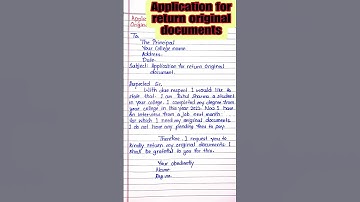 Application for
return original
documents
Applic
Origin
To,
The Principal
Your College name
Address.
Date-
Subject: Application for return Original
document.
Respected Sir,
With due respect I would like to
state that I am Rahul Sharma a student
in your college. I completed my degree from
your college in the year 2022. Now I have
an interview for a job next month
for which I need my original documents.
I do not have any pending fees to pay.
Therefore, I request you to
kindly return my original documents. I
shall be grateful to you for this.
Your obediently
Name